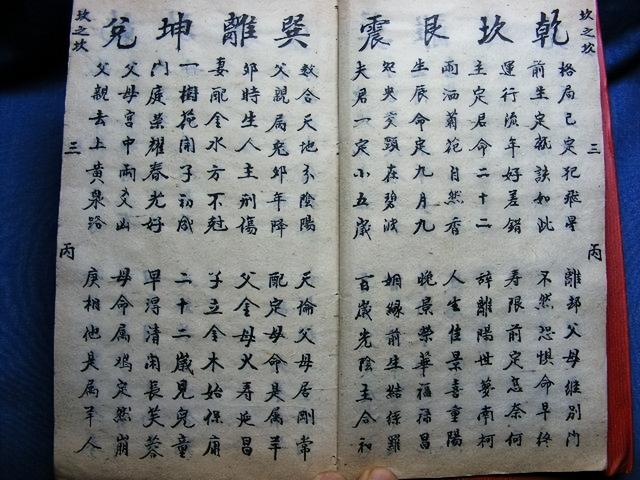 坎之坎 三 丙
乾 坎 艮 震
格局已定犯飛星 離鄉父母往別門
前生定就該如此 不然恐懼命早終
運行流年好差錯 寿限前定怎奈何
主定君命二十二 辭離陽世夢南柯
雨洒菊花自然香 人生佳景喜重陽
生辰命定九月九 晚景榮華福祿昌
夗央交頸在碧波 姻緣前生結絲羅
夫君一定小五歲 百歲光陰主合和
巽 離 坤 兌
數合天地分陰陽 天倫父母居剛常
父親属兔卯年降 配定母命是属羊
卯時生人主刑傷 父金母火寿延昌
妻配金水方不尅 子立金木始保康
一樹花開子初成 二十二歲見兒童
門庭榮耀春光好 早得清闲長芙蓉
父母宮中兩爻凶 母命属鸡定然崩
父親去上黃泉路 庚相他是属羊人
坎之坎 三 丙